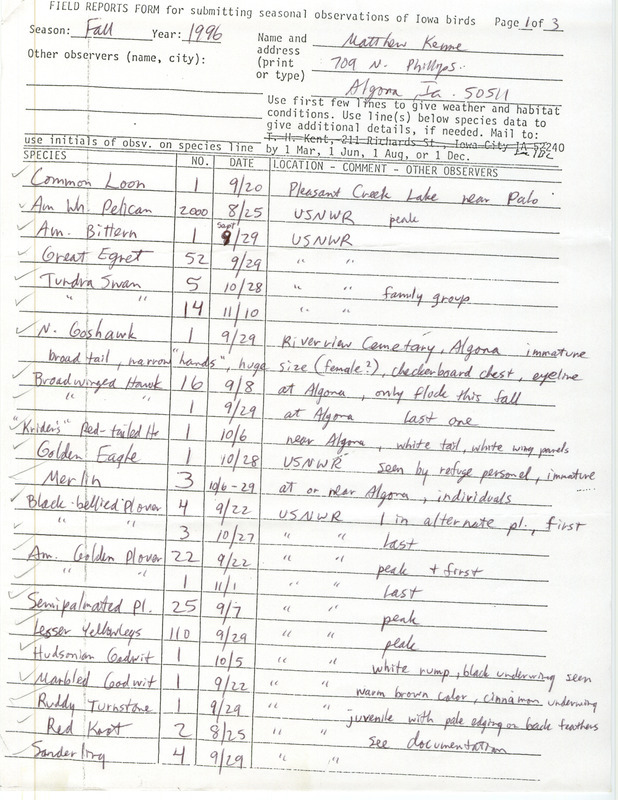 FIELD REPORTS FORM for submitting seasonal observations of Iowa birds Page 1 of 3
Season: Fall Year: 1996 Name and address (print or type) Matthew Kenne
709 N. Phillips
Algona, Ia. 50511
Other observers (name, city):
Use first few lines to give weather and habitat
conditions. Use line(s) below species data to
give additional details, if needed. Mail to:
T. H. Kent, 211 Richards St., Iowa City IA 52240
use initials of obsv. on species line by 1 Mar, 1 Jun, 1 Aug, or 1 Dec.
SPECIES NO. DATE LOCATION - COMMENT - OTHER OBSERVERS
Common Loon 1 9/20 Pleasant Creek Lake near Palo
Am Wh. Pelican 2000 8/25 USNWR peak
Am. Bittern 1 Sept 9/29 USNWR
Great Egret 52 9/29 " "
Tundra Swan 5 10/28 " " family group
" " 14 11/10 " "
N. Goshawk 1 9/29 Riverview Cemetary, Algona immature
broad tail, narrow "hands", huge size (female?), checkerboard chest, eyeline
Broadwinged Hawk 16 9/8 at Algona, only flock this fall
" " 1 9/29 at Algona last one
"Kriders" Red-tailed H 1 10/6 near Algona, white tail, white wing panels
Golden Eagle 1 10/28 USNWR seen by refuge personel, immature
Merlin 3 10/6-29 at or near Algona, individuals
Black-bellied Plover 4 9/22 USNWR 1 in alternate pl., first
" " 3 10/27 " " last
Am. Golden Plover 22 9/22 " " peak + first
" " 1 11/1 " " last
Semipalmated Pl. 25 9/7 " " peak
Lesser Yellowlegs 110 9/29 " " peak
Hudsonian Godwit 1 10/5 " " white rump, black underwing seen
Marbled Godwit 1 9/22 " " warm brown color, cinnamon underwing
Ruddy Turnstone 1 9/29 " " juvenile with pale edging on back feathers
Red Knot 2 8/25 " " see documentation
Sanderling 4 9/29 " "